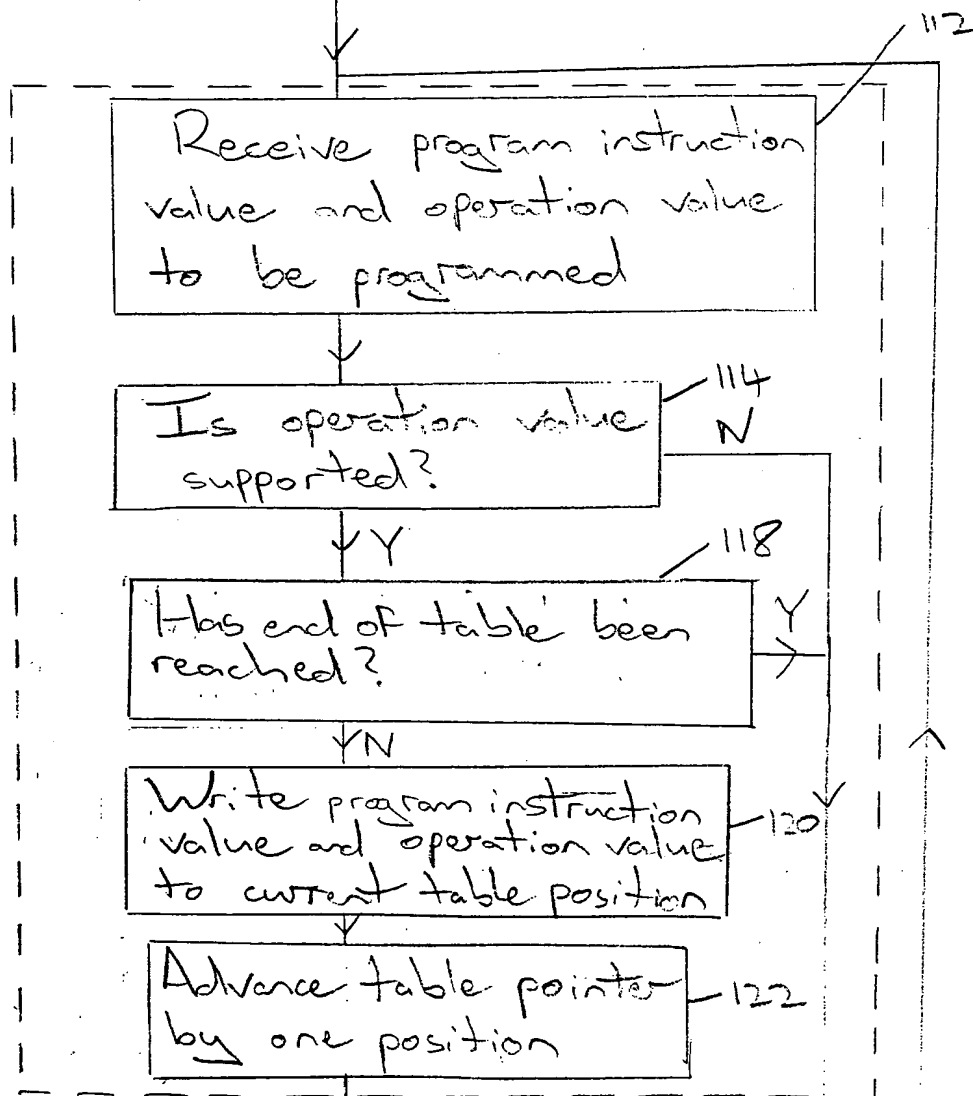 112
Receive program instruction
value and operation value
to be programmed
114
Is operation value
supported?
N
Y
118
Has end of table been
reached?
Y
N
Write program instruction
value and operation value
to current table position
120
Advance table pointer
by one position
122